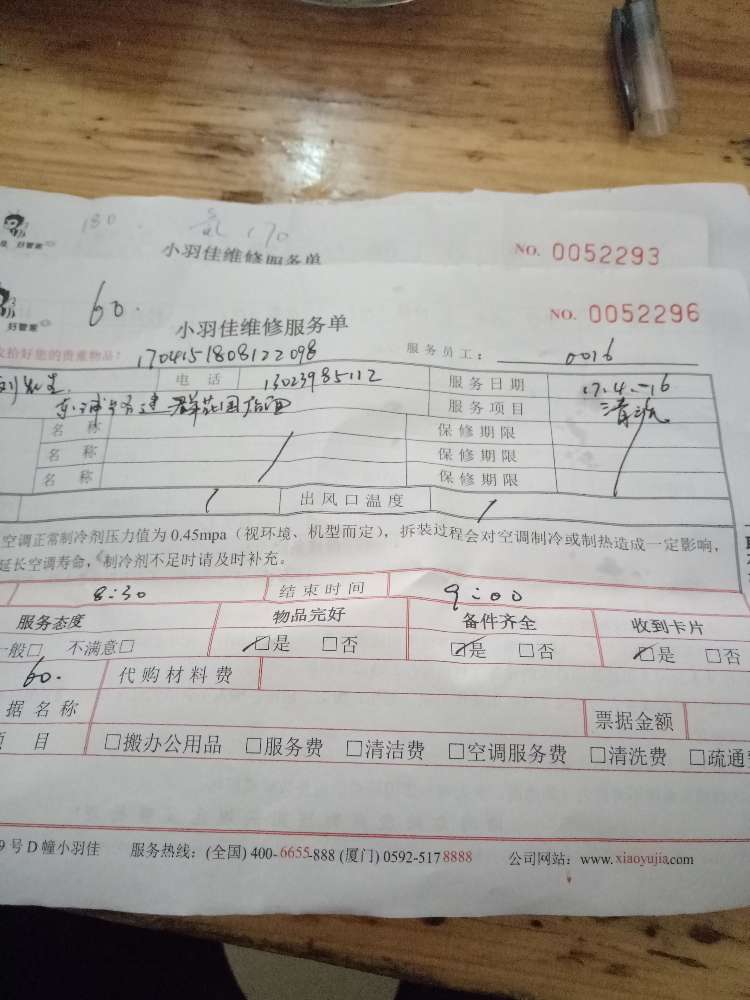 180. 170
好管家
小羽佳维修服务单
NO. 0052293
60.
好管家
小羽佳维修服务单
NO. 0052296
收拾好您的贵重物品! 1704151808122098 服务员工: 0016
电话 13023985112 服务日期 17.4.-16
服务项目 清洗
名称 保修期限
名称 保修期限
名称 保修期限
出风口温度
空调正常制冷剂压力值为 0.45mpa(视环境、机型而定),拆装过程会对空调制冷或制热造成一定影响,
延长空调寿命,制冷剂不足时请及时补充。
8:30 结束时间 9:00
服务态度 物品完好 备件齐全 收到卡片
一般□ 不满意□ □是 □否 □是 □否 □是 □否
60. 代购材料费
据名称 票据金额
项目 □搬办公用品 □服务费 □清洁费 □空调服务费 □清洗费 □疏通费
9号D幢小羽佳 服务热线:(全国) 400-6655-888 (厦门) 0592-5178888 公司网站:www.xiaoyujia.com